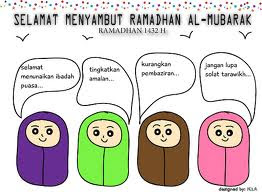 SELAMAT MENYAMBUT RAMADHAN AL-MUBARAK
RAMADHAN 1432 H
selamat
menunaikan ibadah
puasa...
tingkatkan
amalan...
kurangkan
pembaziran...
jangan lupa
solat tarawikh...
designed by: